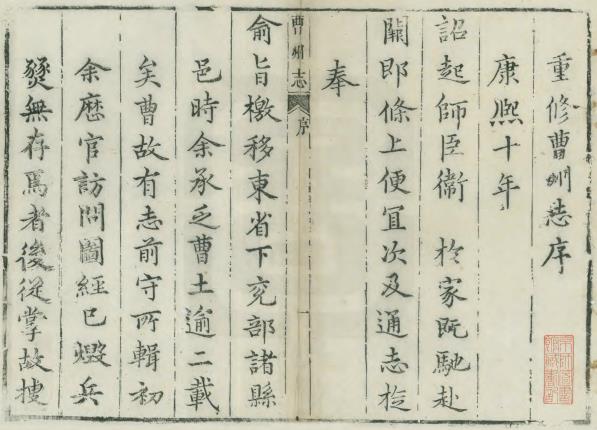 重修曹州志序
康熙十年
詔起師臣衛　於家既馳赴
闕即條上便宜次及通志於
奉
曹州志　序
俞旨檄移東省下兖部諸縣
邑時余承乏曹土逾二載
矣曹故有志前守所輯初
余歷官訪問圖經已燬兵
燹無存焉者後從掌故搜